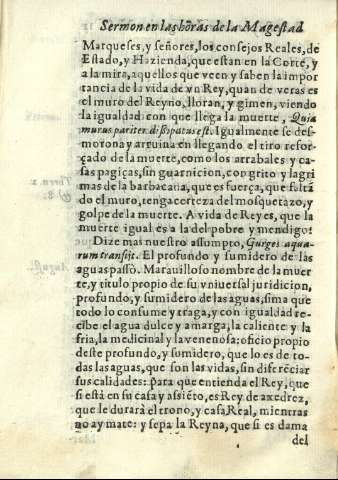 Sermon en las hõras de la Magestad
Marqueses, y señores, los consejos Reales, de
Estado, y Hazienda, que estan en la Corte, y
a la mira, aquellos que veen y saben la impor
tancia de la vida de vn Rey, quan de veras es
el muro del Reyno, lloran, y gimen, viendo
la igualdad con que llega la muerte, Quia
murus pariter dissipatus est. Igualmente se des-
morona y arruina en llegando el tiro refor-
çado de la muerte, como los arrabales y ca-
sas pagiças, sin guarnicion, con grito y lagri
mas de la barbacana, que es fuerça, que faltã
do el muro, tenga certeza del mosquetazo, y
golpe de la muerte. A vida de Reyes, que la
muerte igual es a la del pobre y mendigo!
Dize mas nuestro assumpto, Gurges aqua-
rum transijt. El profundo y sumidero de las
aguas passò. Marauilloso nombre de la muer
te, y titulo propio de su vniuersal juridicion,
profundo, y sumidero de las aguas, sima que
todo lo consume y traga, y con igualdad re-
cibe el agua dulce y amarga, la caliente y la
fria, la medicinal y la venenosa; oficio propio
deste profundo, y sumidero, que lo es de to-
das las aguas, que son las vidas, sin diferẽciar
sus calidades: para que entienda el Rey, que
si está en su casa y assiẽto, es Rey de axedrez,
que le durarà el trono, y casa Real, mientras
no ay mate: y sepa la Reyna, que si es dama
del